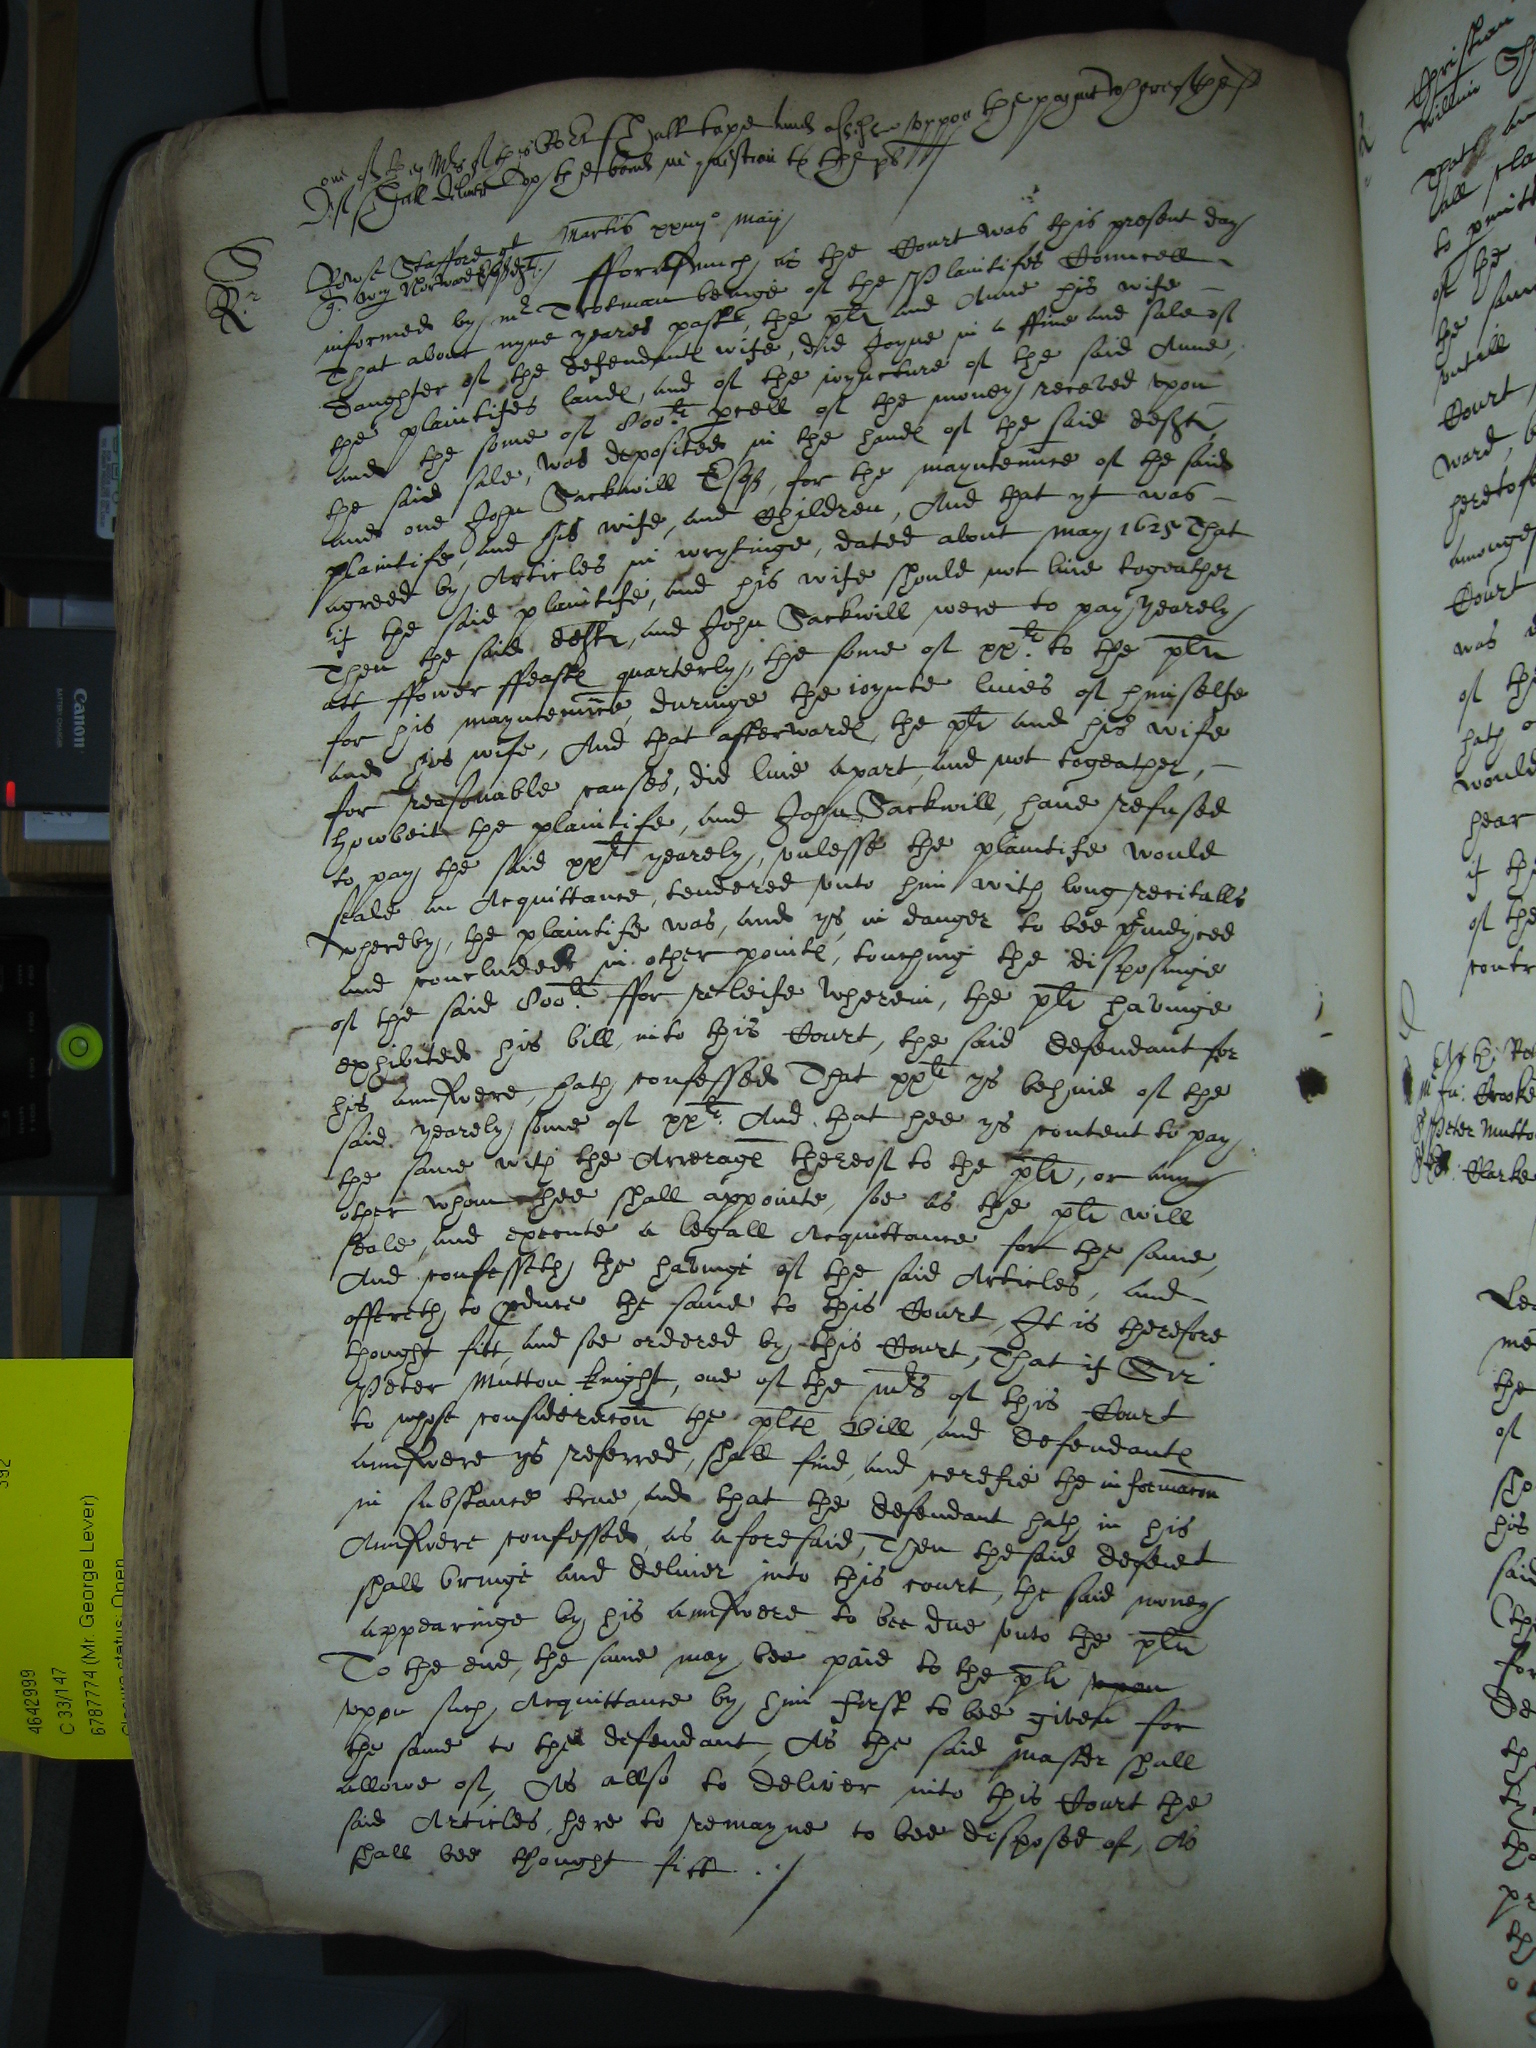 one of the Mrs of this Court shall take and upon the payment thereof the
Deft shall deliver up the bond in question to the plt
Martis xxiijo Maij
S
Rr
Rowse Stafford plt
Norwood Esqr deft
Forasmuch as the Court was this present day
informed by mr Trotman beinge of the Plaintifes Councell
That about nyne yeares past, the plt and Anne his wife
Daughter of the defendantes wife, did Joyne in a ffine and sale of
the plaintifes landes, and of the ioyncture of the said Anne,
and the some of 800li pcell of the money receved vpon
the said sale, was deposited in the handes of the said deft,
and one John Sackvill Esqr, for the mayntennce of the said
plaintife, and his wife, and Children, And that yt was
agreed by Articles in wrytinge, dated about May 1625 That
if the said plaintife, and his wife should not live togeather
Then the said deft, and John Sackvill were to pay yearely
att ffower ffeastes quarterly, the some of xxli to the plt
for his mayntennce, duringe the ioynte lives of himselfe
and his wife, And that afterwardes, the plt and his wife
for reasonable causes, did live apart, and not togeather,
howbeit the plaintife, and John Sackvill, have refused
to pay the said xxli yearely, vnlesse the plaintife would
seale an Acquittance, tendered vnto him with long recitalls
whereby, the plaintife was, and ys, in danger to bee preiudyced
and concluded in other pointes, touching the disposinge
of the said 800li ffor releife wherein, the plt havinge
exhibited his bill, into this Court, the said defendant for
his answere, hath confessed That xxli ys behind of the
said yearely some of xxli. And that hee ys content to pay
the same with the Arrerages thereof to the plt, or any
other whom hee shall appointe, soe as the plt will
seale, and execute a legall Acquittance for the same,
And confesseth the havinge of the said Articles, and
offereth to pduce the same to this Court, It is therefore
thought fitt, and soe ordered by this Court, That if Sir
Peter Mutton knight, one of the mrs of this Court
to whose consideracon the pltes Bill and defendantes
answere ys referred, shall find, and certefie the informacon
in substance true, and that the defendant hath in his
Answere confessed, as aforesaid, Then the said defendt
shall bringe and deliver into this court, the said money
appearinge by his answere to bee due vnto the plt
To the end, the same may bee paid to the plt vpon
vppon such Acquittance by him first to bee given for
the same to the defendant, As the said Master shall
allowe of, As allso to deliver into this Court the
said Articles, here to remayne to bee disposed of, As
shall bee thought fitt ./
Canon
BATTERY CHARGER
392
4642999
C 33/147
6787774 (Mr. George Lever)
Closure status: Open
Christian
william
That
all
to pmitt
of the
the same
vntill
Court,
ward,
heretofore
amongest
Court
was
of the
hath
would
hear
if the
of the
contr
Peter Mutton
Clarke
me
the
of
his
said
for
De